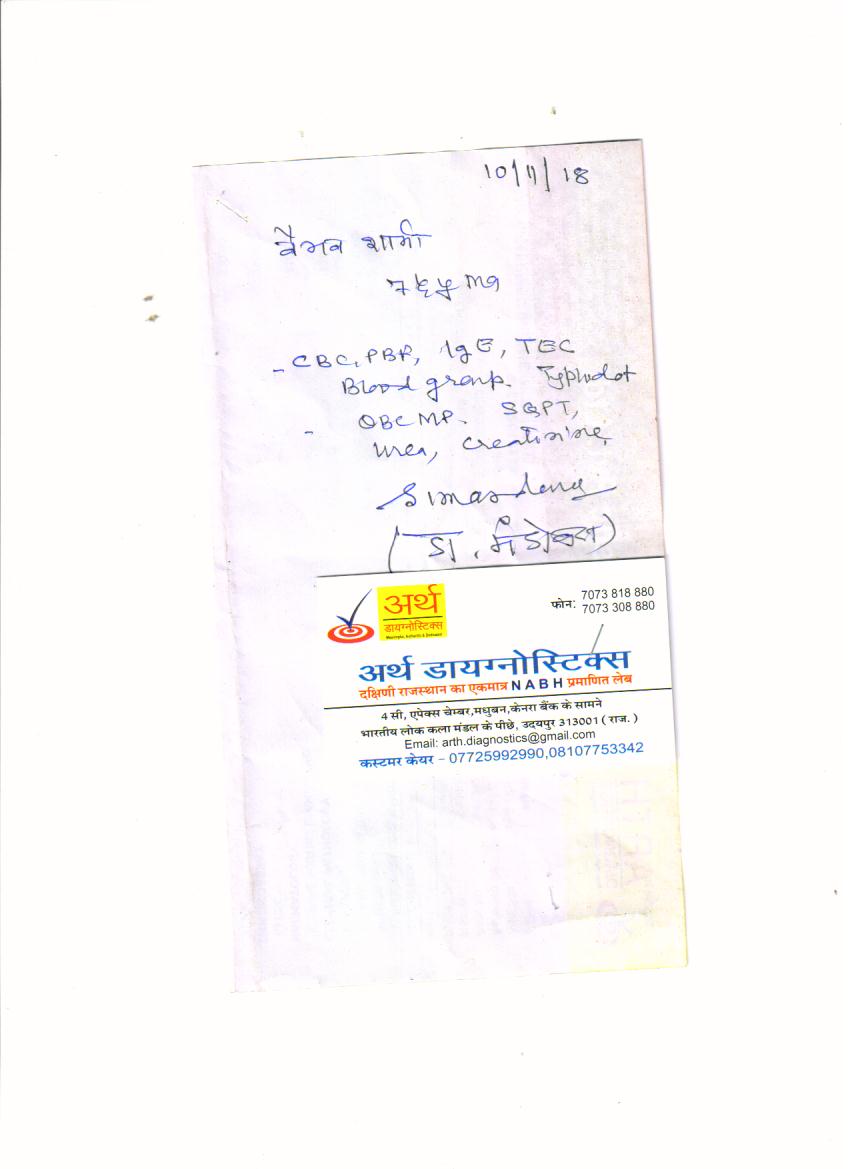 10/11/18
वैभव शर्मा
- CBC, PBF, IgE, TEC
Blood group. Typhidot
- QBC MP. SGPT,
Urea, Creatinine,
(डा.
अर्थ
डायग्नोस्टिक्स
फोन: 7073 818 880
7073 308 880
अर्थ डायग्नोस्टिक्स
दक्षिणी राजस्थान का एकमात्र NABH प्रमाणित लेब
4 सी, एपेक्स चेम्बर,मधुबन,केनरा बैंक के सामने
भारतीय लोक कला मंडल के पीछे, उदयपुर 313001 ( राज. )
Email: arth.diagnostics@gmail.com
कस्टमर केयर - 07725992990,08107753342